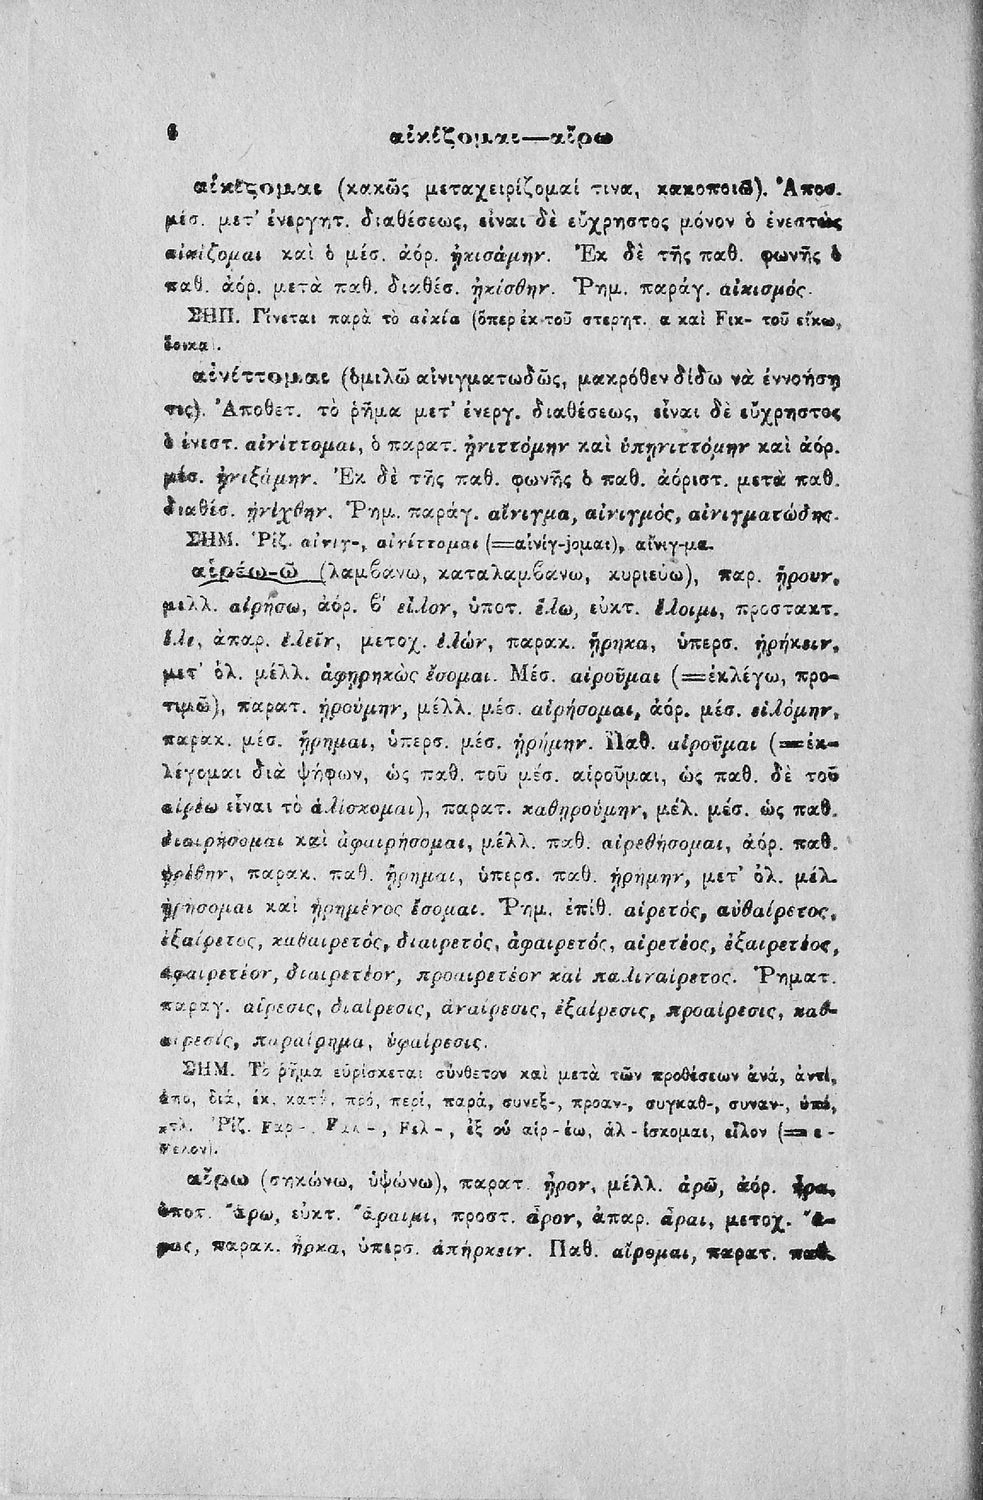 6
αἰκίζομαι—αἴρω
αἰκίζομαι (κακῶς μεταχειρίζομαί τινα, κακοποιῶ). Ἀποθ.
μέσ. μετ’ ἐνεργητ. διαθέσεως, εἶναι δὲ εὔχρηστος μόνον ὁ ἐνεστὼς
αἰκίζομαι καὶ ὁ μέσ. ἀόρ. ᾐκισάμην. Ἐκ δὲ τῆς παθ. φωνῆς ὁ
παθ. ἀόρ. μετὰ παθ. διαθέσ. ᾐκίσθην. Ῥημ. παράγ. αἰκισμός.
ΣΗΠ. Γίνεται παρὰ τὸ αἰκία (ὅπερ ἐκ τοῦ στερητ. α καὶ Fικ- τοῦ εἴκω,
ἔοικα).
αἰνίττομαι (ὁμιλῶ αἰνιγματωδῶς, μακρόθεν δίδω νὰ ἐννοήσῃ
τις). Ἀποθετ. τὸ ῥῆμα μετ’ ἐνεργ. διαθέσεως, εἶναι δὲ εὔχρηστος
ὁ ἐνεστ. αἰνίττομαι, ὁ παρατ. ᾐνιττόμην καὶ ὑπῃνιττόμην καὶ ἀόρ.
μέσ. ᾐνιξάμην. Ἐκ δὲ τῆς παθ. φωνῆς ὁ παθ. ἀόριστ. μετὰ παθ.
διαθέσ. ᾐνίχθην. Ῥημ. παράγ. αἴνιγμα, αἰνιγμός, αἰνιγματώδης.
ΣΗΜ. Ῥίζ. αἰνιγ-, αἰνίττομαι (=αἰνίγ-jομαι), αἴνιγ-μα.
αἱρέω-ῶ (λαμβάνω, καταλαμβάνω, κυριεύω), παρ. ᾕρουν,
μέλλ. αἱρήσω, ἀόρ. β′ εἷλον, ὑποτ. ἕλω, εὐκτ. ἕλοιμι, προστακτ.
ἕλε, ἀπαρ. ἑλεῖν, μετοχ. ἑλών, παρακ. ᾕρηκα, ὑπερσ. ᾑρήκειν,
μετ’ ὀλ. μέλλ. ἀφῃρηκὼς ἔσομαι. Μέσ. αἱροῦμαι (=ἐκλέγω, προ-
τιμῶ), παρατ. ᾑρούμην, μέλλ. μέσ. αἱρήσομαι, ἀόρ. μέσ. εἱλόμην,
παρακ. μέσ. ᾕρημαι, ὑπερσ. μέσ. ᾑρήμην. Παθ. αἱροῦμαι (=ἐκ-
λέγομαι διὰ ψήφων, ὡς παθ. τοῦ μέσ. αἱροῦμαι, ὡς παθ. δὲ τοῦ
αἱρέω εἶναι τὸ ἁλίσκομαι), παρατ. καθῃρούμην, μέλ. μέσ. ὡς παθ.
διαιρήσομαι καὶ ἀφαιρήσομαι, μέλλ. παθ. αἱρεθήσομαι, ἀόρ. παθ.
ᾑρέθην, παρακ. παθ. ᾕρημαι, ὑπερσ. παθ. ᾑρήμην, μετ’ ὀλ. μέλ.
ᾑρήσομαι καὶ ᾑρημένος ἔσομαι. Ῥημ. ἐπίθ. αἱρετός, αὐθαίρετος,
ἐξαίρετος, καθαιρετός, διαιρετός, ἀφαιρετός, αἱρετέος, ἐξαιρετέος,
ἀφαιρετέον, διαιρετέον, προαιρετέον καὶ παλιναίρετος. Ῥηματ.
παραγ. αἵρεσις, διαίρεσις, ἀναίρεσις, ἐξαίρεσις, προαίρεσις, καθ-
αίρεσίς, παραίρημα, ὑφαίρεσις.
ΣΗΜ. Τὸ ῥῆμα εὑρίσκεται σύνθετον καὶ μετὰ τῶν προθέσεων ἀνά, ἀντί,
ἀπο, διά, ἐκ, κατά, πρό, περί, παρά, συνεξ-, προαν-, συγκαθ-, συναν-, ὑπό,
κτλ. Ῥίζ. Fαρ-, Fαλ-, Fελ-, ἐξ οὗ αἱρ-έω, ἁλ-ίσκομαι, εἷλον (=ε-
Fελον).
αἴρω (σηκώνω, ὑψώνω), παρατ. ᾖρον, μέλλ. ἀρῶ, ἀόρ. ἦρα,
ὑποτ. ἄρω, εὐκτ. ἄραιμι, προστ. ἆρον, ἀπαρ. ἆραι, μετοχ. ἄ-
ρας, παρακ. ἦρκα, ὑπερσ. ἀπήρκειν. Παθ. αἴρομαι, παρατ. παθ.